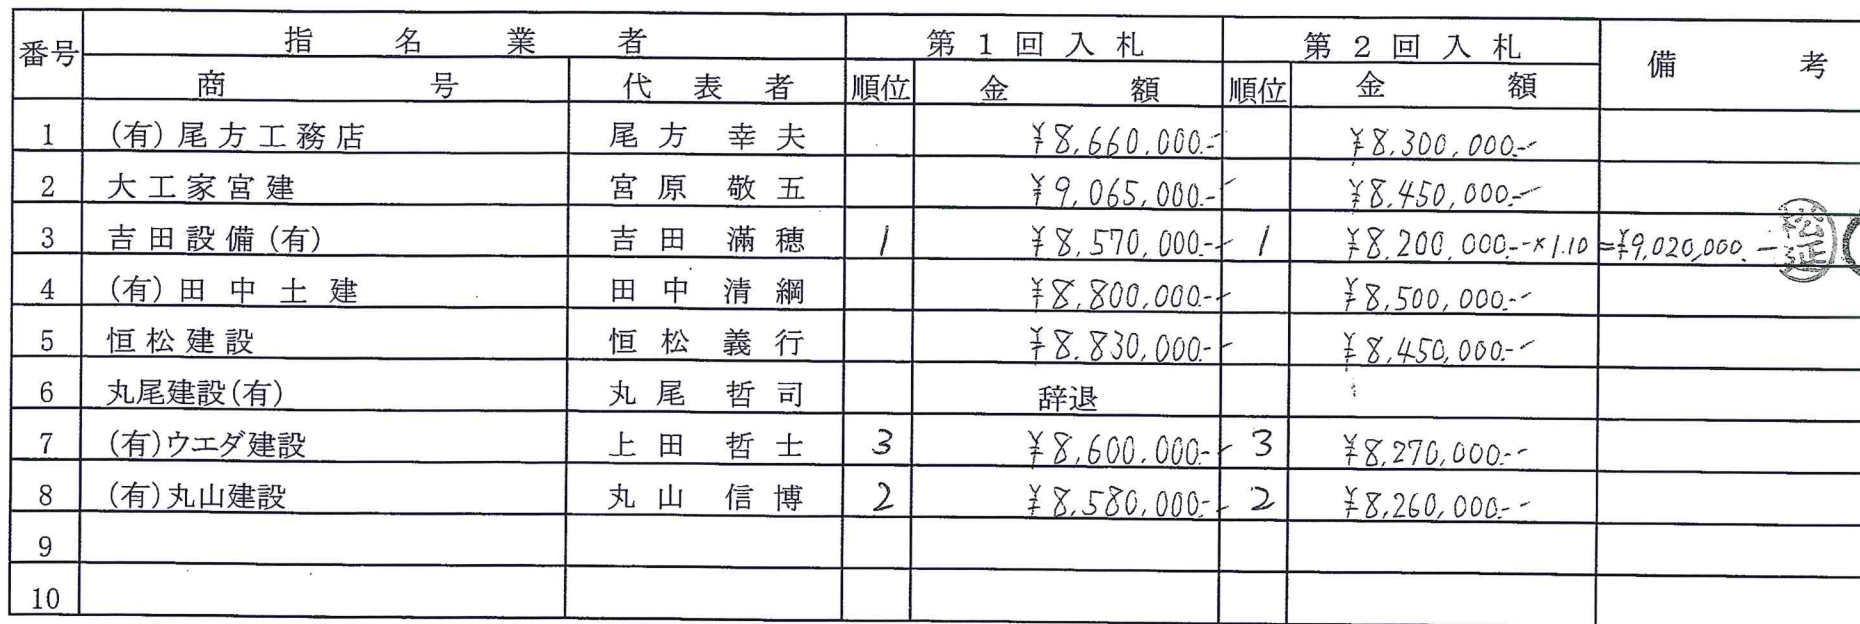 番号 指名業者 第1回入札 第2回入札 備考
商号 代表者 順位 金額 順位 金額
1 (有)尾方工務店 尾方幸夫 ¥8,660,000.- ¥8,300,000.-
2 大工家宮建 宮原敬五 ¥9,065,000.- ¥8,450,000.-
3 吉田設備(有) 吉田滿穂 1 ¥8,570,000.- 1 ¥8,200,000.- ×1.10 =¥9,020,000.-
4 (有)田中土建 田中清綱 ¥8,800,000.- ¥8,500,000.-
5 恒松建設 恒松義行 ¥8,830,000.- ¥8,450,000.-
6 丸尾建設(有) 丸尾哲司 辞退
7 (有)ウエダ建設 上田哲士 3 ¥8,600,000.- 3 ¥8,270,000.-
8 (有)丸山建設 丸山信博 2 ¥8,580,000.- 2 ¥8,260,000.-
9
10